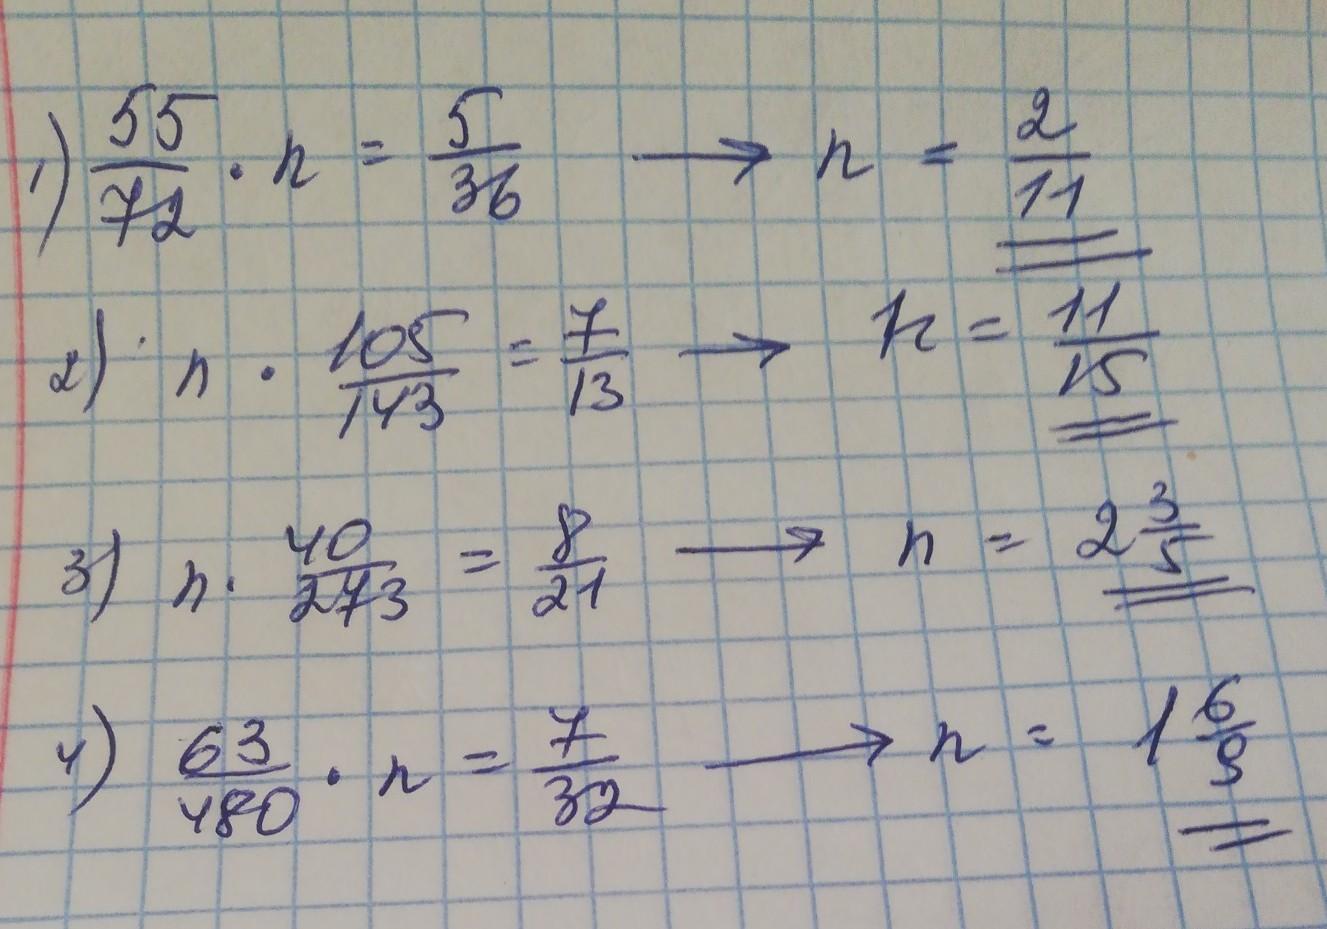 1) 55/72 · n = 5/36 → n = 2/11
2) n · 105/143 = 7/13 → n = 11/15
3) n · 40/273 = 8/21 → n = 2 3/5
4) 63/480 · n = 7/32 → n = 1 6/9